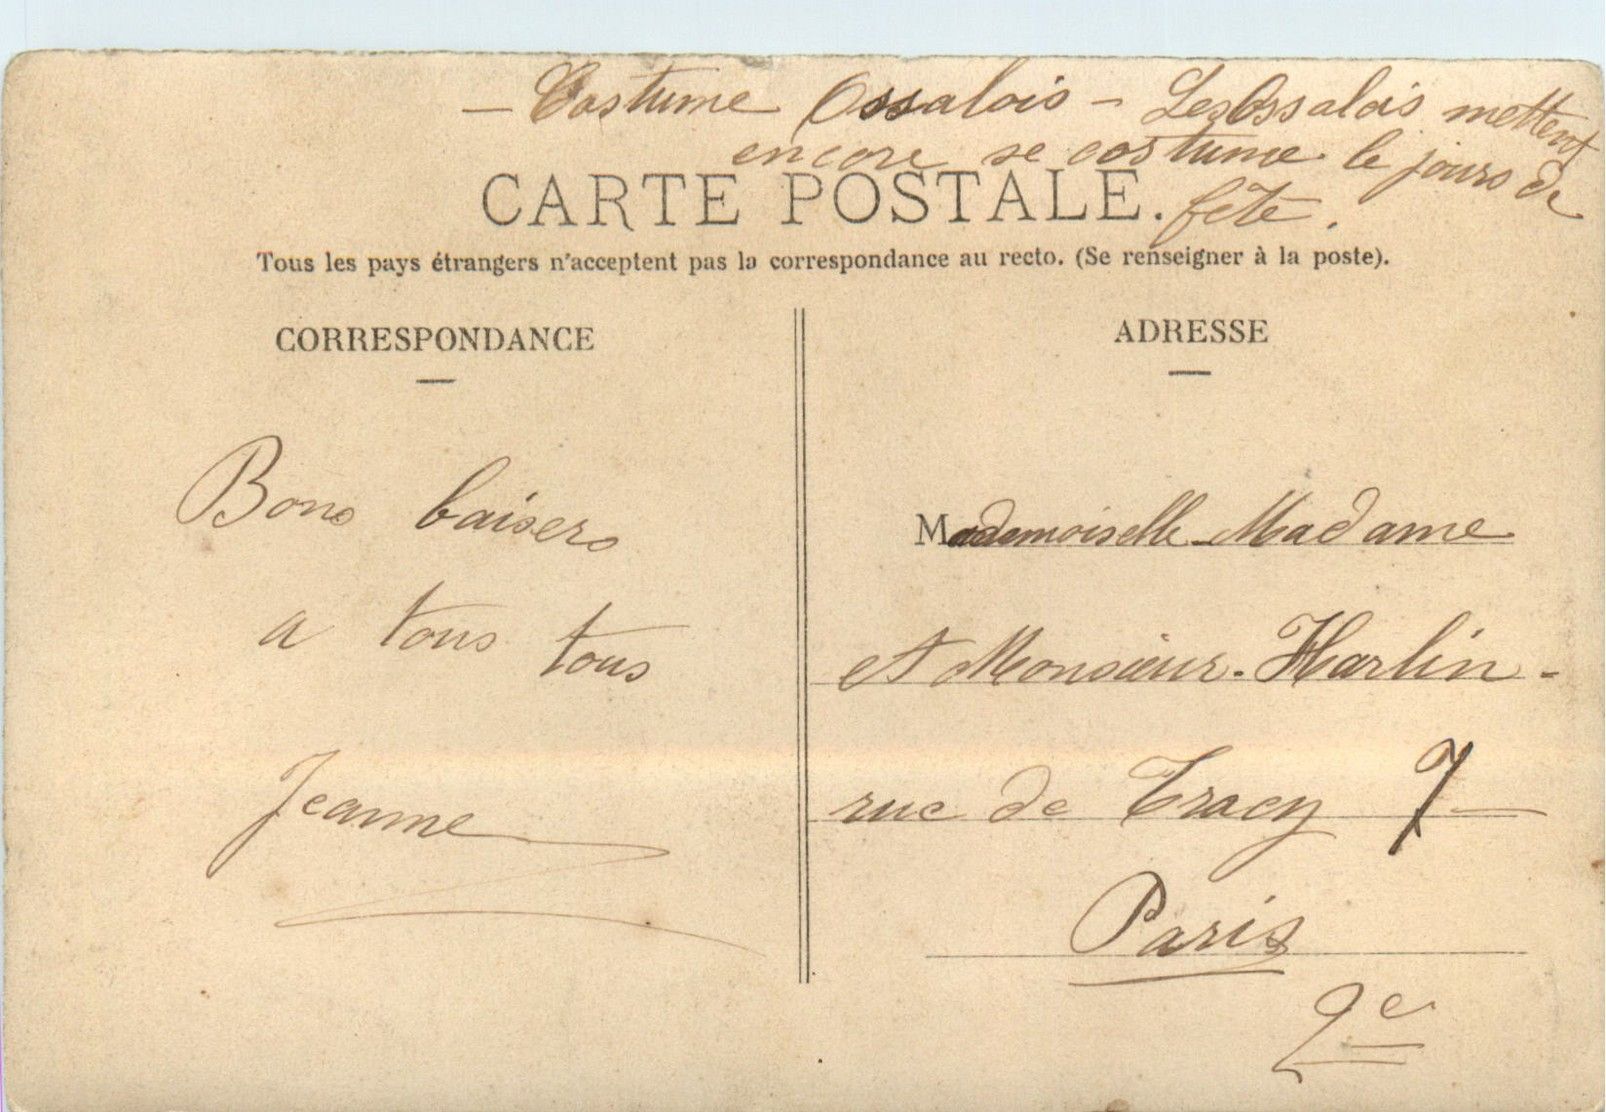 — Costume Ossalois – Les Ossalois mettent
encore se costume le jours de
fête.
CARTE POSTALE.
Tous les pays étrangers n'acceptent pas la correspondance au recto. (Se renseigner à la poste).
CORRESPONDANCE
Bons baisers
a tous tous
Jeanne
ADRESSE
Mademoiselle Madame
et Monsieur. Harlin -
rue de Tracy 7 —
Paris
2e